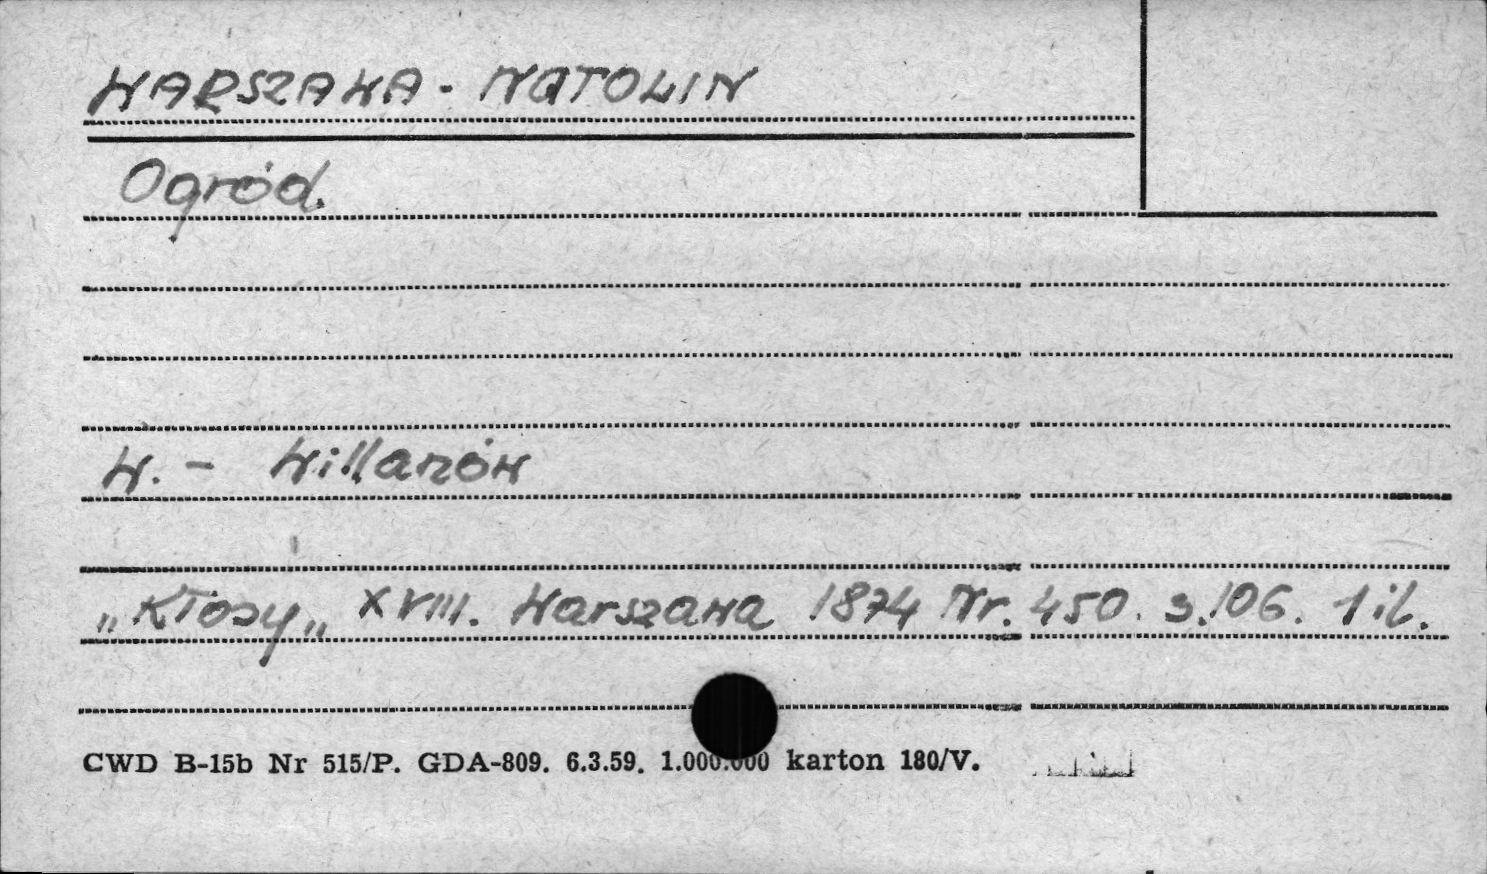 WARSZAWA - NATOLIN
Ogród.
W. - Willanów
"Kłosy" XVIII. Warszawa 1874 Nr. 450. s. 106. 1 il.
CWD B-15b Nr 515/P. GDA-809. 6.3.59. 1.000.000 karton 180/V.